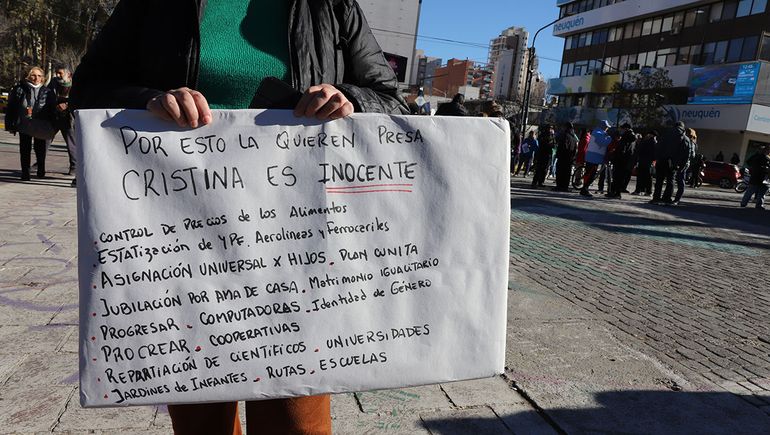 POR ESTO LA QUIEREN PRESA
CRISTINA ES INOCENTE
. CONTROL DE PRECIOS DE LOS ALIMENTOS
. ESTATIZACIÓN DE YPF, AEROLINEAS Y FERROCARILES
. ASIGNACIÓN UNIVERSAL X HIJOS . PLAN QUNITA
. JUBILACIÓN POR AMA DE CASA . MATRIMONIO IGUALITARIO
. PROGRESAR . COMPUTADORAS . IDENTIDAD DE GÉNERO
. PROCREAR . COOPERATIVAS
. REPATIACIÓN DE CIENTIFICOS . UNIVERSIDADES
. JARDINES DE INFANTES . RUTAS . ESCUELAS
neuquén
NEUQUÉN
neuquén